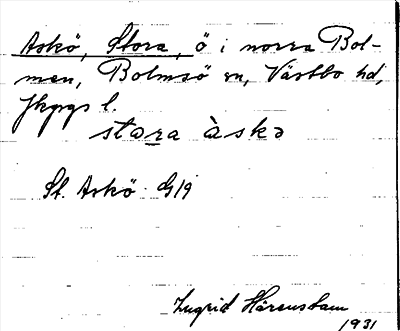 Askö, Stora, ö i norra Bol-
men, Bolmsö sn, Västbo hd,
Jkpgs l.
stɷra àskə
St. Askö G19
Ingrid Härenstam
1931